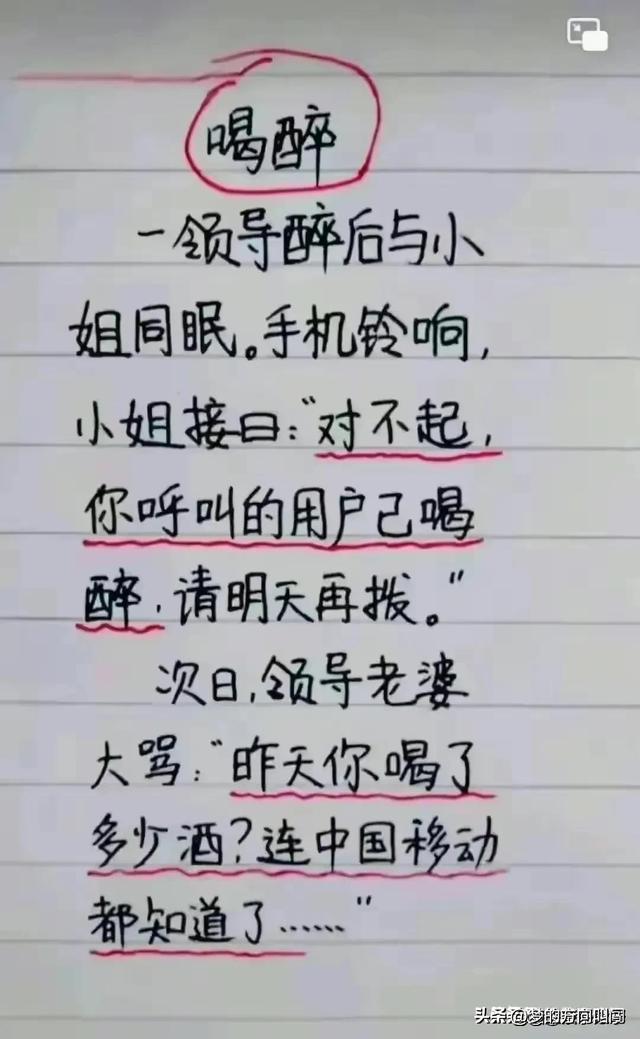 喝醉
一领导醉后与小
姐同眠。手机铃响,
小姐接曰:“对不起,
你呼叫的用户己喝
醉,请明天再拨。”
次日,领导老婆
大骂:“昨天你喝了
多少酒?连中国移动
都知道了……”
头条 @梦的方向叫闯